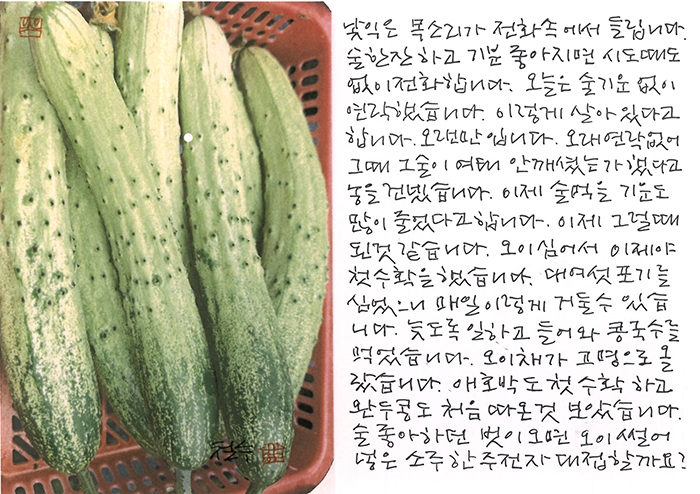 낯익은 목소리가 전화속에서 들립니다.
술한잔 하고 기분 좋아지면 시도때도
없이 전화합니다. 오늘은 술기운 없이
연락했습니다. 이렇게 살아 있다고
합니다. 오랜만입니다. 오래 연락없어
그때 그술이 여태 안깨셨는가 했다고
농을 건넸습니다. 이제 술먹을 기운도
많이 줄었다고합니다. 이제 그럴때
된것 같습니다. 오이 심어서 이제야
첫수확을했습니다. 대여섯 포기를
심었으니 매일 이렇게 거둘수 있습
니다. 늦도록 일하고 들어와 콩국수를
먹었습니다. 오이채가 고명으로 올
랐습니다. 애호박도 첫 수확 하고
완두콩도 처음 따온것 보았습니다.
술 좋아하던 벗이 오면 오이 썰어
넣은 소주 한 주전자 대접할까요?
철수